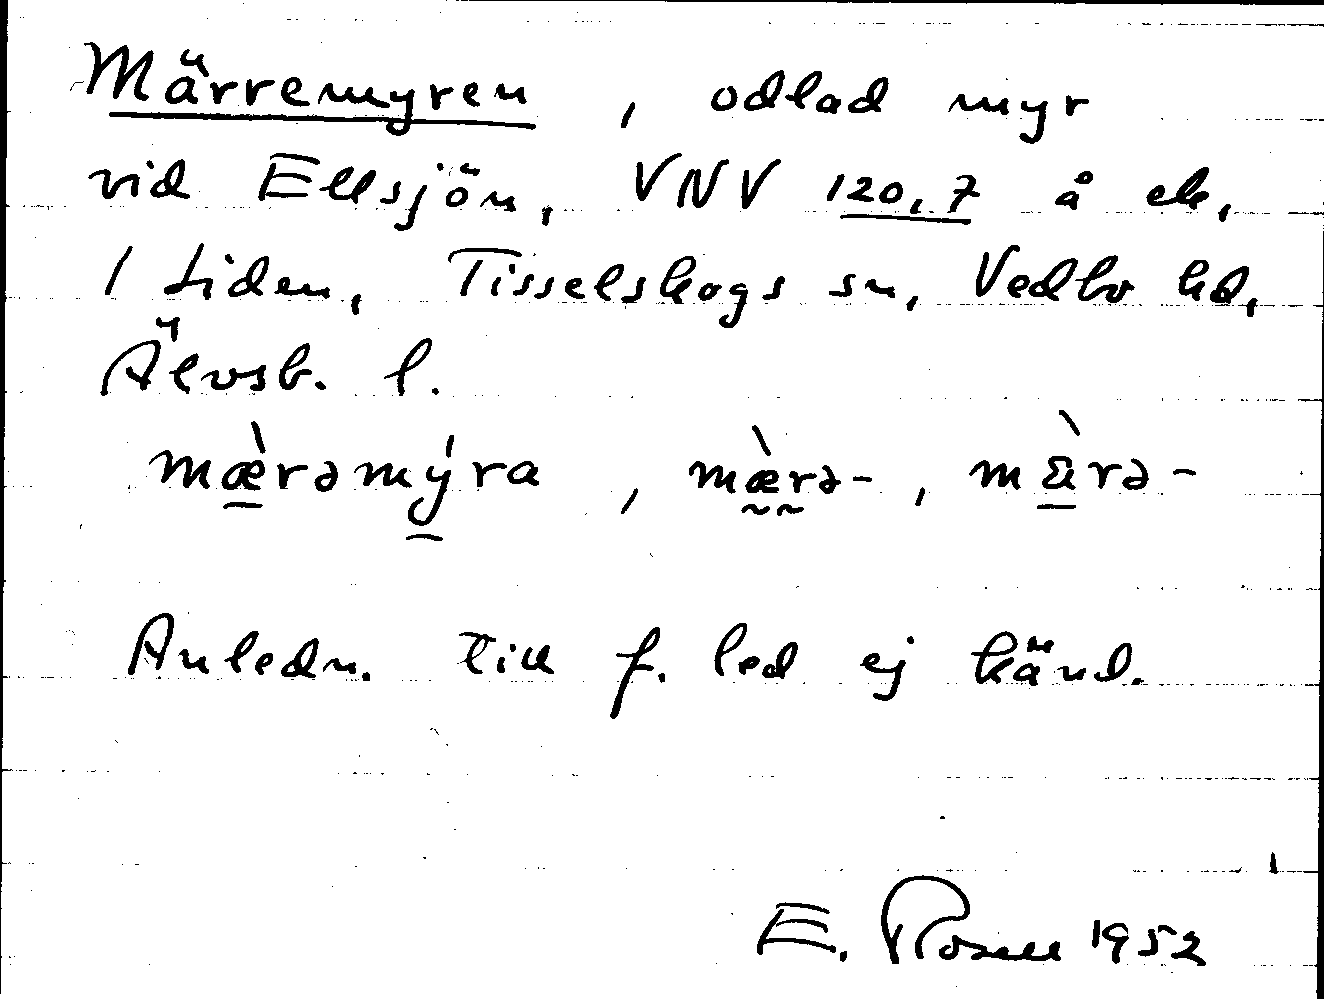 Märremyren, odlad myr
vid Ellsjön, VNV 120,7 å ek,
1 Liden, Tisselskogs sn, Vedbo hd,
Älvsb. l.
mæ̀rəmýra, mæ̀rə-, mà̈rə-
Anledn. till f. led ej känd.
E. Rosell 1952